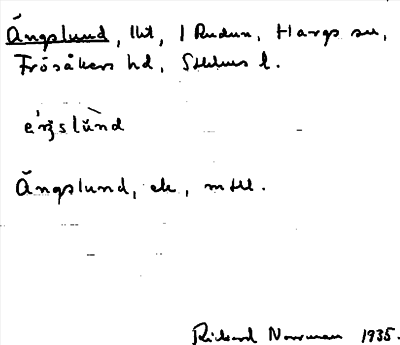 Ängslund, lht, 1 Rudun, Hargs sn,
Frösåkers hd, Sthlms l.
Ängslund, ek, mtbl.
Rickard Norrman 1935.